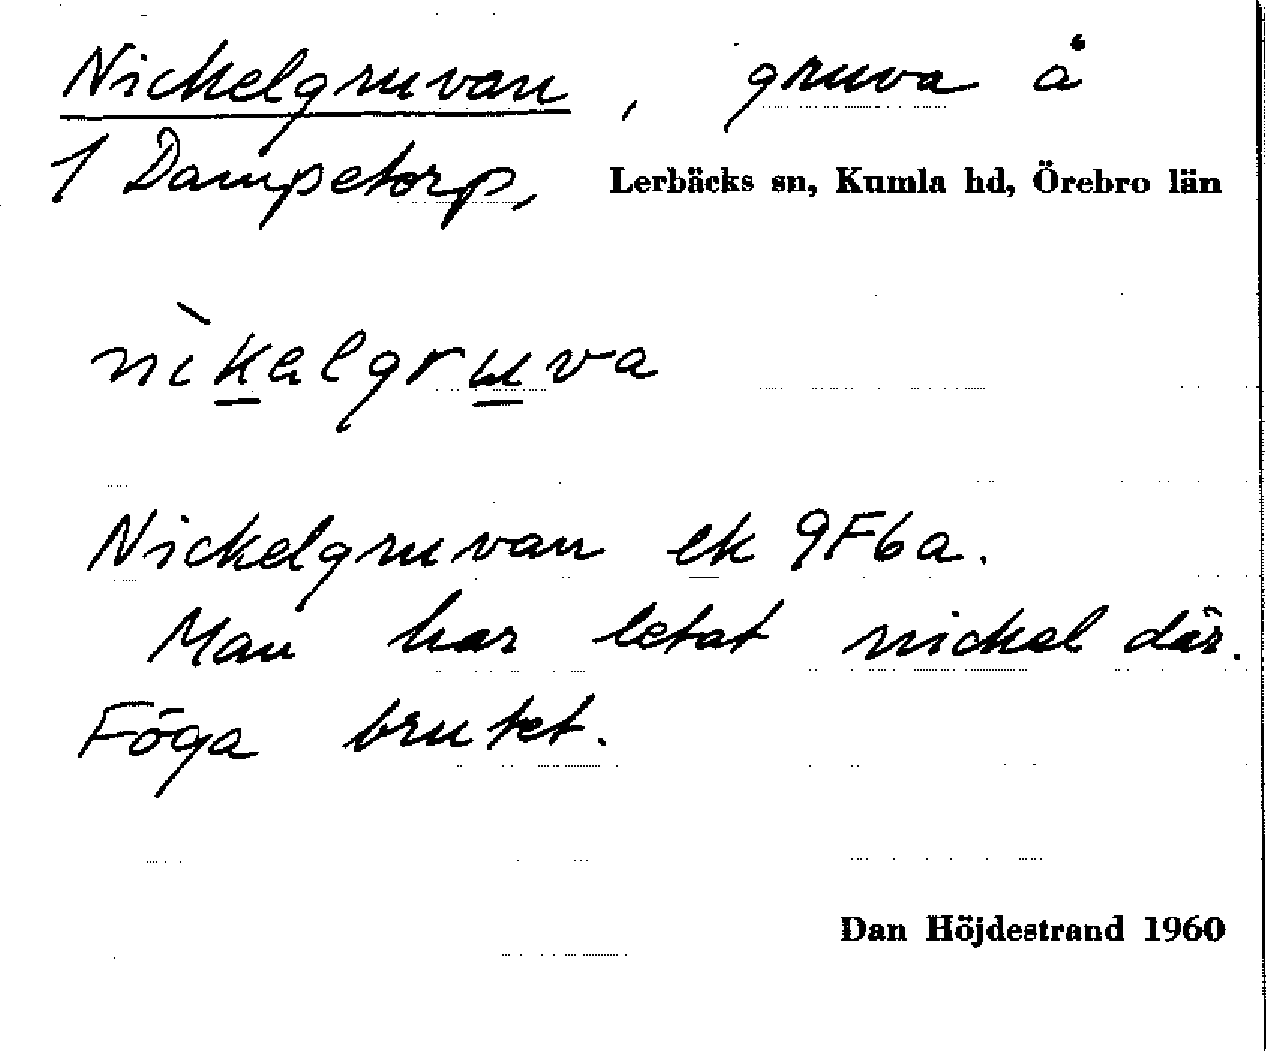 Nickelgruvan, gruva å
1 Dampetorp, Lerbäcks sn, Kumla hd, Örebro län
nìkalgruva
Nickelgruvan ek 9F6a.
Man har letat nickel där.
Föga brutet.
Dan Höjdestrand 1960